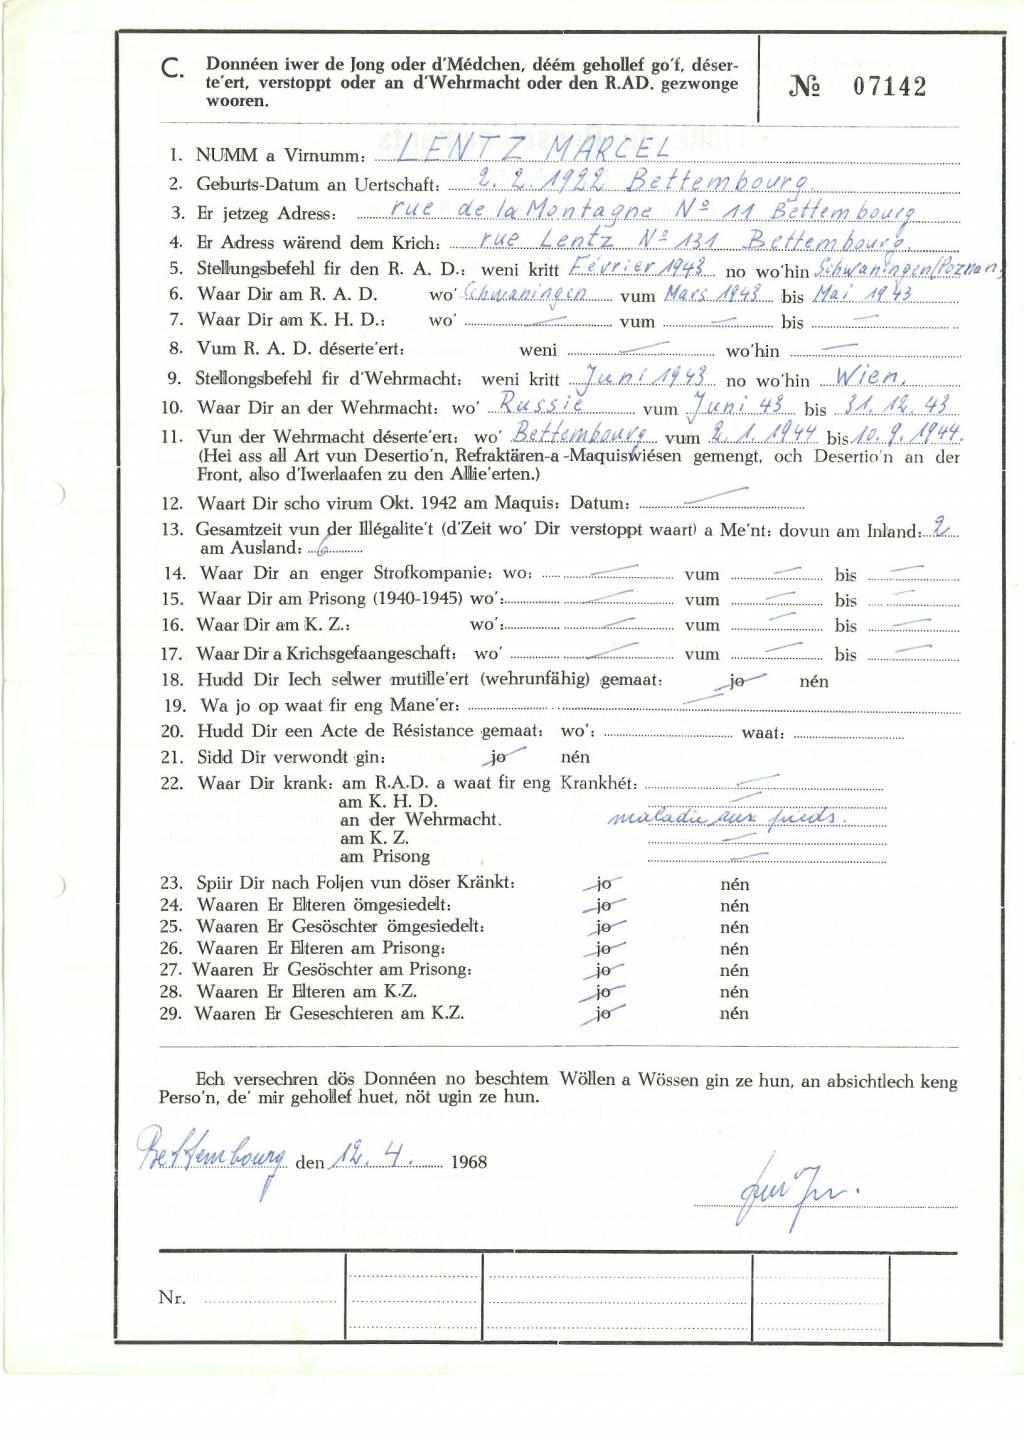 C. Donnéen iwer de Jong oder d'Médchen, déém gehollef go'f, déser-
te'ert, verstoppt oder an d'Wehrmacht oder den R.AD. gezwonge
wooren.
№ 07142
1. NUMM a Virnumm: LENTZ MARCEL
2. Geburts-Datum an Uertschaft: 2.2.1922 Bettembourg.
3. Er jetzeg Adress: rue de la Montagne Nº 11 Bettembourg
4. Er Adress wärend dem Krich: rue Lentz Nº 131 Bettembourg.
5. Stellungsbefehl fir den R. A. D.: weni kritt Février 1943 no wo'hin Schwaningen (Poznan)
6. Waar Dir am R. A. D. wo' Schwaningen vum Mars 1943 bis Mai 1943
7. Waar Dir am K. H. D.: wo' — vum — bis —
8. Vum R. A. D. déserte'ert: weni — wo'hin —
9. Stellongsbefehl fir d'Wehrmacht: weni kritt Juni 1943 no wo'hin Wien.
10. Waar Dir an der Wehrmacht: wo' Russie vum Juni 43 bis 31.12.43
11. Vun der Wehrmacht déserte'ert: wo' Bettembourg vum 2.1.1944 bis 10.9.1944.
(Hei ass all Art vun Desertio'n, Refraktären-a-Maquiswiésen gemengt, och Desertio'n an der
Front, also d'Iwerlaafen zu den Allie'erten.)
12. Waart Dir scho virum Okt. 1942 am Maquis: Datum: —
13. Gesamtzeit vun der Illégalite't (d'Zeit wo' Dir verstoppt waart) a Me'nt: dovun am Inland: 2
am Ausland: 6
14. Waar Dir an enger Strofkompanie: wo: — vum — bis —
15. Waar Dir am Prisong (1940-1945) wo': — vum — bis —
16. Waar Dir am K. Z.: wo': — vum — bis —
17. Waar Dir a Krichsgefaangeschaft: wo' — vum — bis —
18. Hudd Dir Iech selwer mutille'ert (wehrunfähig) gemaat: jo nén
19. Wa jo op waat fir eng Mane'er: —
20. Hudd Dir een Acte de Résistance gemaat: wo': waat:
21. Sidd Dir verwondt gin: jo nén
22. Waar Dir krank: am R.A.D. a waat fir eng Krankhét: —
am K. H. D. —
an der Wehrmacht. maladie aux pieds.
am K. Z. —
am Prisong —
23. Spiir Dir nach Foljen vun döser Kränkt: jo nén
24. Waaren Er Elteren ömgesiedelt: jo nén
25. Waaren Er Gesöschter ömgesiedelt: jo nén
26. Waaren Er Elteren am Prisong: jo nén
27. Waaren Er Gesöschter am Prisong: jo nén
28. Waaren Er Elteren am K.Z. jo nén
29. Waaren Er Geseschteren am K.Z. jo nén
Ech versechren dös Donnéen no beschtem Wöllen a Wössen gin ze hun, an absichtlech keng
Perso'n, de' mir gehollef huet, nöt ugin ze hun.
Bettembourg den 12.4. 1968
Nr.